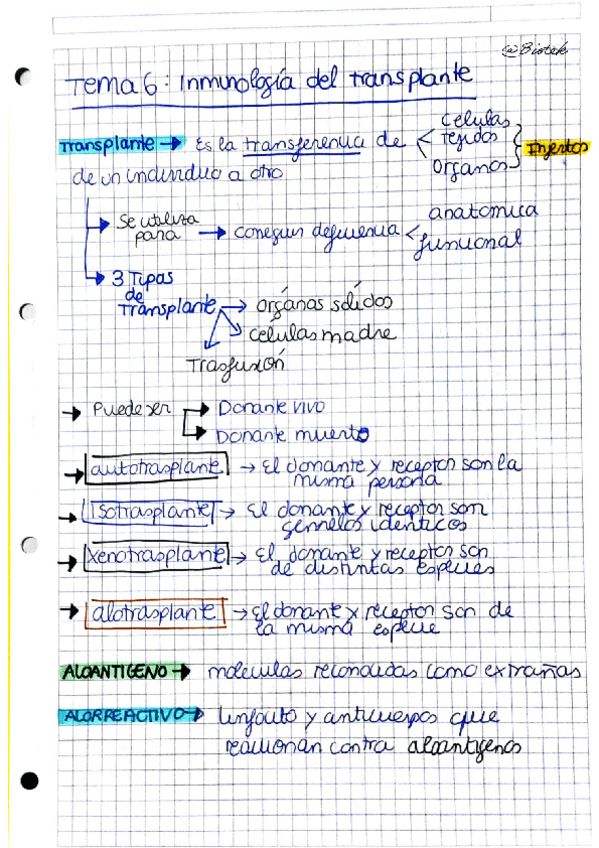 @Biotek
Tema 6: Inmunología del transplante
Transplante → Es la transferencia de < células tejidos organos } Injertos
de un individuo a otro
Se utiliza para → conseguir deficiencia < anatomica funcional
3 Tipos de Transplante → orgánas sólidos
células madre
Trasfusión
→ Puede ser → Donante vivo
→ Donante muerto
→ autotrasplante → El donante y receptor son la
misma persona
→ Isotrasplante → El donante y receptor son
gemelos identicos
→ Xenotrasplante → El donante y receptor son
de distintas especies
→ alotrasplante → El donante y receptor son de
la misma especie
ALOANTIGENO → moleculas reconocidas como extrañas
ALORREACTIVO → linfocito y anticuerpos que
reaccionan contra aloantigenos